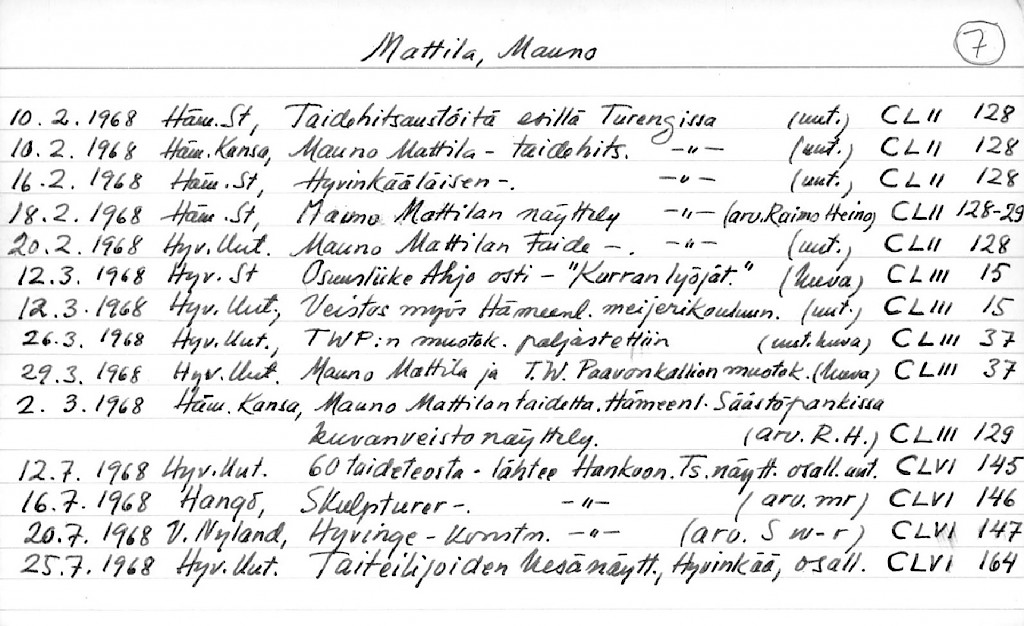 Mattila, Mauno 7
10.2.1968 Häm.St, Taidehitsaustöitä esillä Turengissa (uut.) CLII 128
10.2.1968 Häm.Kansa, Mauno Mattila - taidehits. -"- (uut.) CLII 128
16.2.1968 Häm.St, Hyvinkääläisen -. -"- (uut.) CLII 128
18.2.1968 Häm.St, Mauno Mattilan näyttely -"- (arv.Raimo Heino) CLII 128-29
20.2.1968 Hyv.Uut. Mauno Mattilan taide -. -"- (uut.) CLII 128
12.3.1968 Hyv.St Osuusliike Ahjo osti - "Kurran lyöjät." (kuva) CLIII 15
12.3.1968 Hyv.Uut., Veistos myös Hämeenl. meijerikouluun. (uut.) CLIII 15
26.3.1968 Hyv.Uut., TWP:n muotok. paljastettiin (uut.kuva) CLIII 37
29.3.1968 Hyv.Uut. Mauno Mattila ja T.W. Paavonkallion muotok.(kuva) CLIII 37
2.3.1968 Häm.Kansa, Mauno Mattilan taidetta. Hämeenl. Säästöpankissa
kuvanveistonäyttely. (arv. R.H.) CLIII 129
12.7.1968 Hyv.Uut. 60 taideteosta - lähtee Hankoon. Ts.näytt. osall.uut. CLVI 145
16.7.1968 Hangö, Skulpturer -. -"- (arv. mr) CLVI 146
20.7.1968 V. Nyland, Hyvinge - konstn. -"- (arv. S w-r) CLVI 147
25.7.1968 Hyv.Uut. Taiteilijoiden kesänäytt., Hyvinkää, osall. CLVI 164